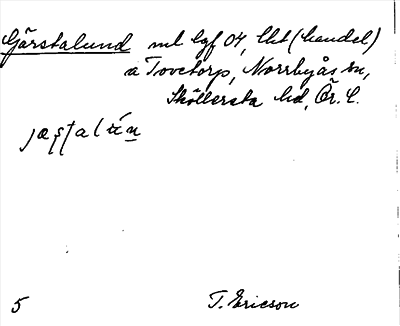 Gärstalund ml lgf 04, lht (handel)
a Tovetorp, Norrbyås sn,
Sköllersta hd, Ör. l.
5
T. Ericson